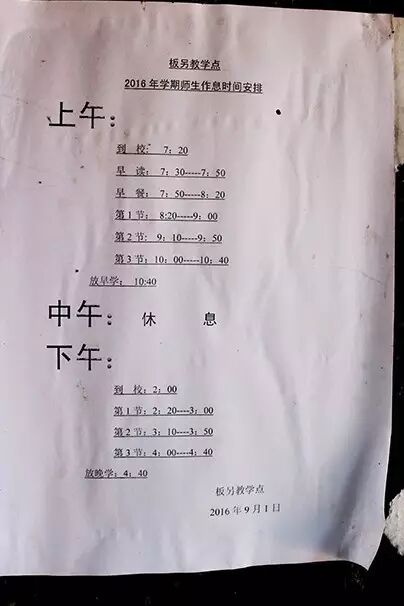 板另教学点
2016年学期师生作息时间安排
上午：
到 校： 7：20
早 读： 7：30-----7：50
早 餐： 7：50-----8：20
第1节： 8:20-----9：00
第2节： 9：10-----9：50
第3节：10：00-----10：40
放早学： 10:40
中午： 休 息
下午：
到 校：2：00
第1节：2：20----3：00
第2节：3：10----3：50
第3节：4：00----4：40
放晚学：4：40
板另教学点
2016年9月1日